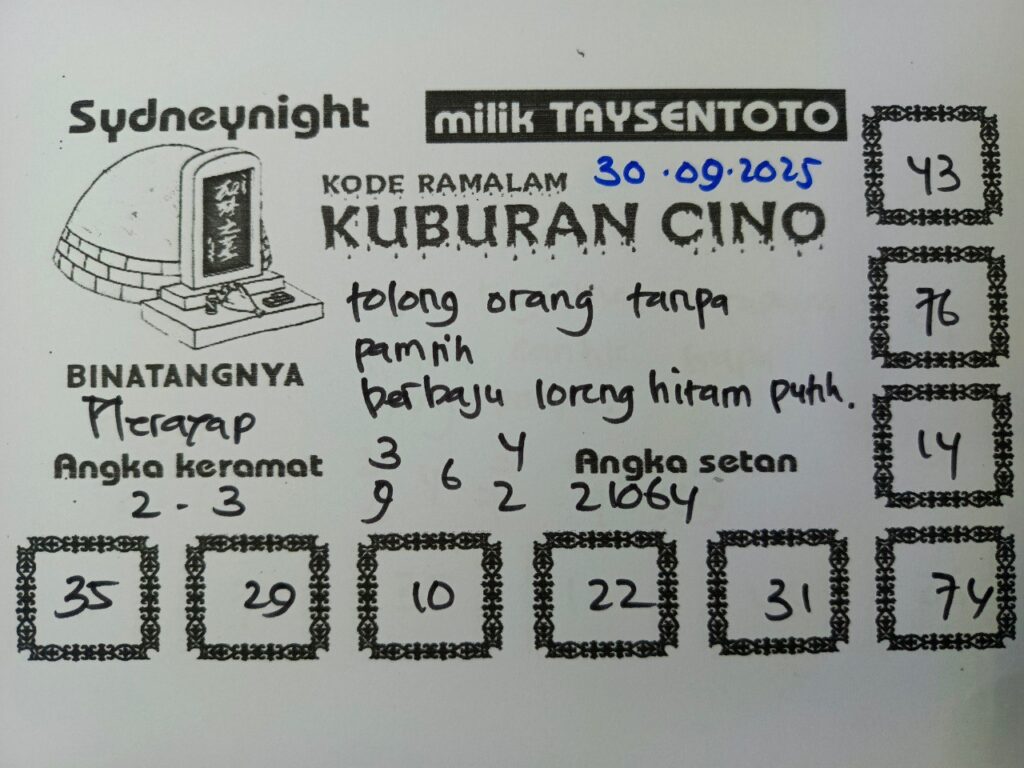 Sydneynight
milik TAYSENTOTO
KODE RAMALAM 30.09.2025
KUBURAN CINO
tolong orang tanpa
pamrih
berbaju loreng hitam putih.
BINATANGNYA
Merayap
Angka keramat
2 - 3
3 4
6
9 2
Angka setan
21064
43
76
14
35 29 10 22 31 74